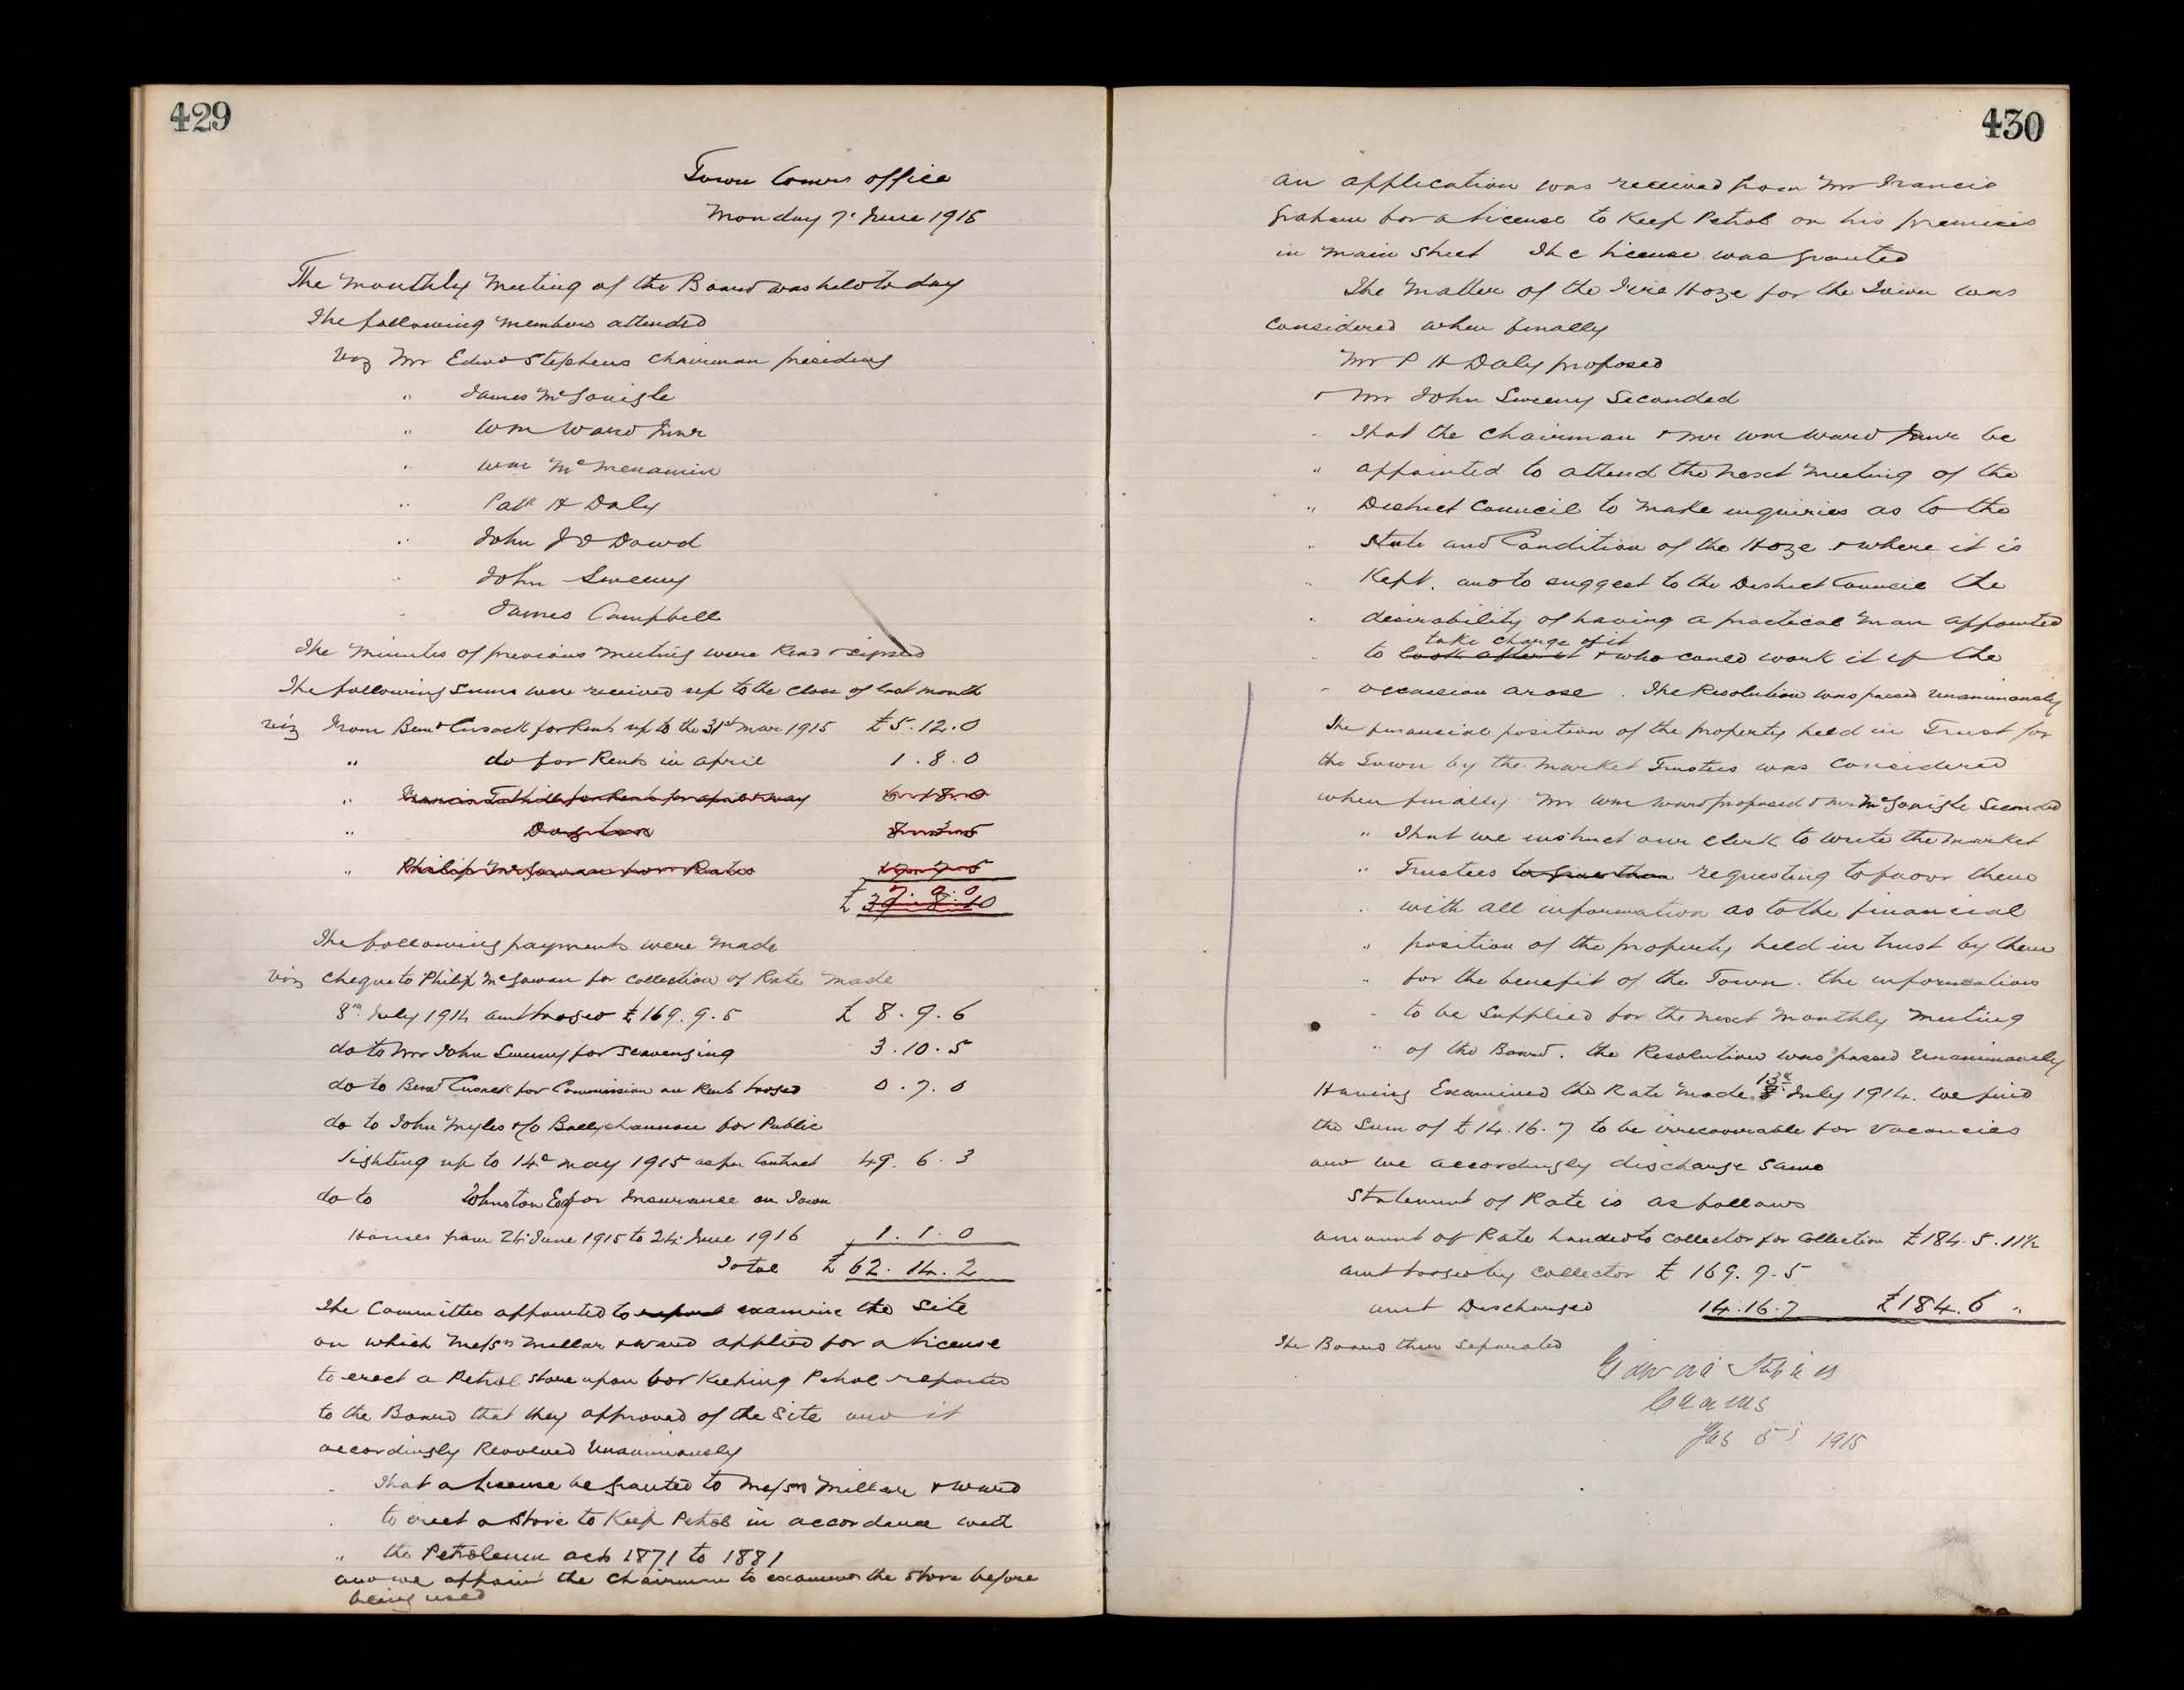 429
Town Comrs office
Monday 7th June 1915
The monthly Meeting of the Board was held to day
The following Members attended
viz Mr Edwd Stephens Chairman presiding
" James McGonigle
" Wm Ward Junr
" Wm McMenamin
" Patk H Daly
" John J O Dowd
" John Sweeny
" James Campbell
The Minutes of previous Meeting were Read & signed
The following Sums were received up to the close of last month
viz From Bernd Cusack for Rents up to the 31st Mar 1915 £5.12.0
" do for Rents in April 1.8.0
" Francis Tuthill for Rents for April & May 6.18.0
" Dog tax 8.3.5
" Philip McGowan for Rates 17.7.5
£ 39.8.10 7.0.0
The following payments were made
viz Cheque to Philip McGowan for collection of Rate made
8th July 1914 amt lodged £169.9.5 £ 8.9.6
do to Mr John Sweeny for scavenging 3.10.5
do to Bernd Cusack for Commission on Rents lodged 0.7.0
do to John Myles & Co Ballyshannon for Public
Lighting up to 14th May 1915 as per Contract 49.6.3
do to Johnston Esq for Insurance on Town
Houses from 24th June 1915 to 24th June 1916 1.1.0
Total £ 62.14.2
The Committee appointed to report examine the site
on which Messrs Millar & Ward applied for a license
to erect a Petrol store upon for Keeping Petrol reported
to the Board that they approved of the site and it
accordingly Resolved Unanimously
" That a license be granted to Messrs Millar & Ward
" to erect a store to Keep Petrol in accordance with
" the Petroleum acts 1871 to 1881
and we appoint the Chairman to examine the store before
being used
430
An application was received from Mr Francis
Graham for a license to Keep Petrol on his premises
in Main Street The license was granted
The Matter of the Fire Hoze for the Town was
considered when finally
Mr P H Daly proposed
& Mr John Sweeny Seconded
" That the Chairman & Mr Wm Ward Junr be
" appointed to attend the next Meeting of the
" District Council to make inquiries as to the
" state and Condition of the Hoze & where it is
" Kept. and to suggest to the District Council the
" desirability of having a practical man appointed
take charge of it
" to look after it & who could work it if the
" occassion arose. The Resolution was passed Unanimously
The financial position of the property held in Trust for
the Town by the Market Trustees was Considered
when finally Mr Wm Ward proposed & Mr McGonigle Seconded
" That we instruct our Clerk to write the Market
" Trustees to give them requesting to favor them
" with all information as to the financial
" position of the property held in trust by them
" for the benefit of the Town. the information
" to be Supplied for the next Monthly Meeting
" of the Board. the Resolution was passed Unanimously
Having Examined the Rate Made 8 13th July 1914. we find
the Sum of £14.16.7 to be irrecoverable for Vacancies
and we accordingly discharge same
Statement of Rate is as follows
amount of Rate handed to Collector for Collection £184.5.11½
amt lodged by Collector £ 169.9.5
amt Discharged 14.16.7 £184.6 "
The Board then Separated
Edward Stephens
1915